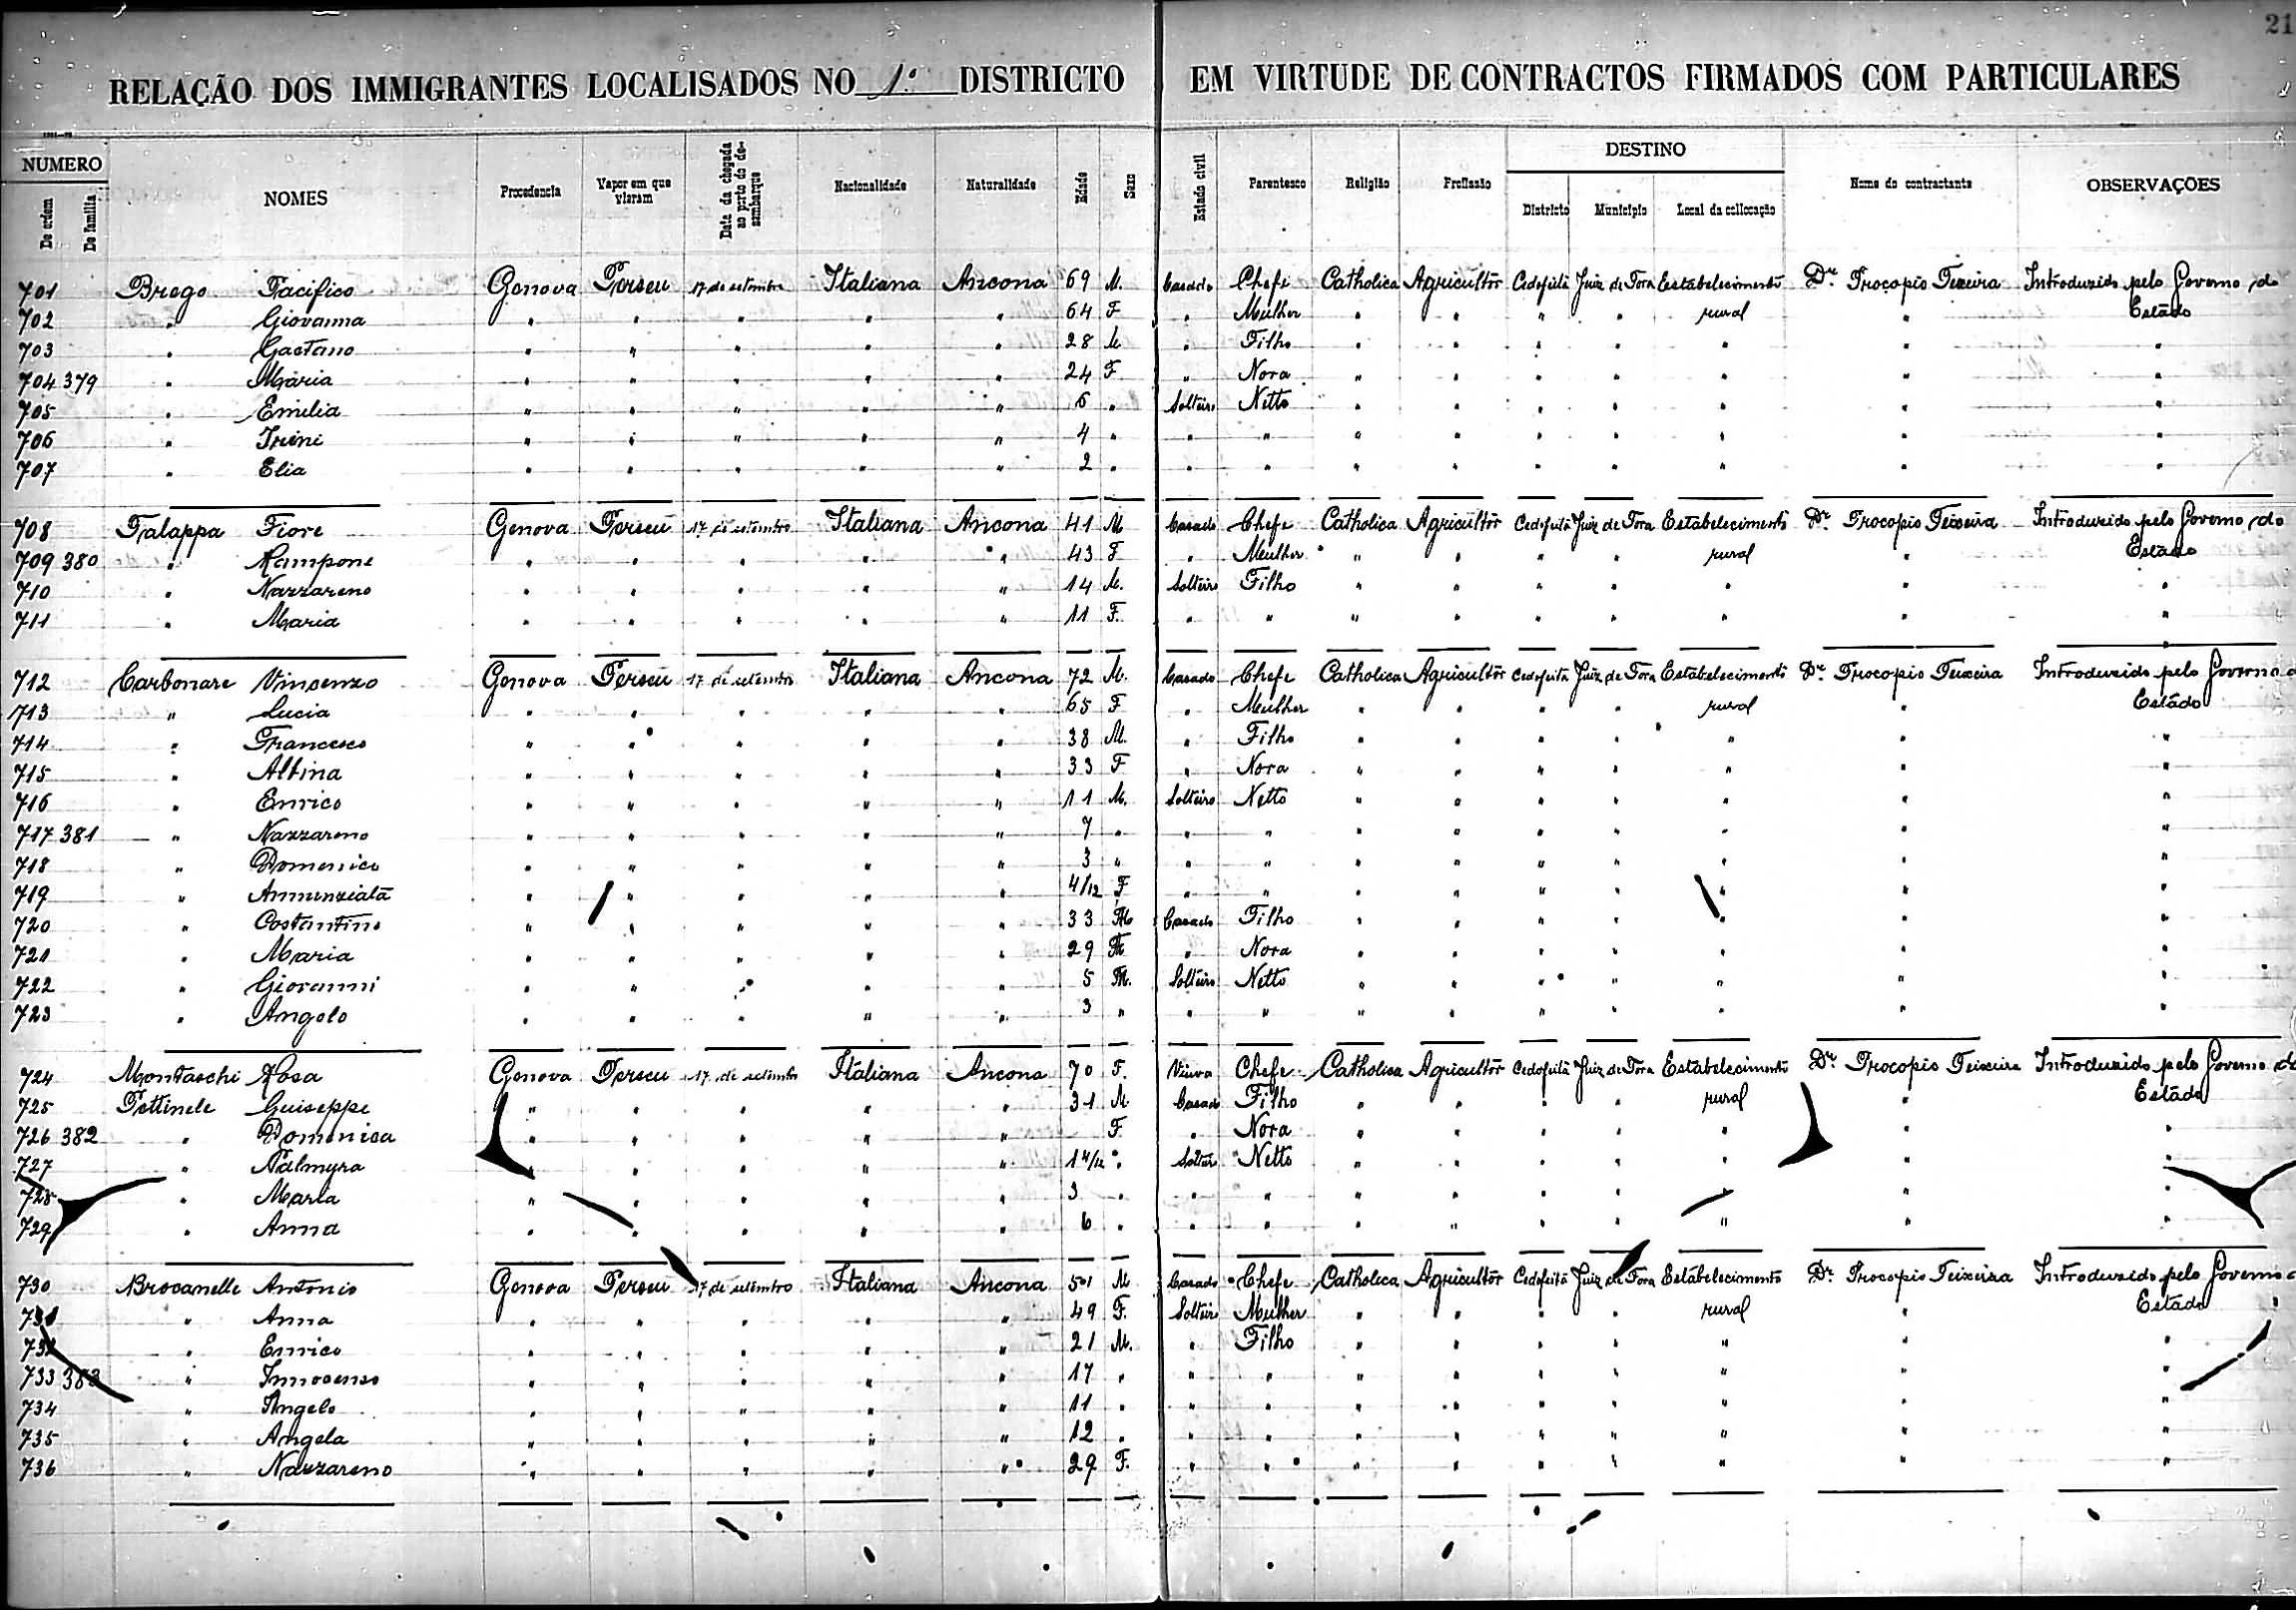 21
RELAÇÃO DOS IMMIGRANTES LOCALISADOS NO 1º DISTRICTO EM VIRTUDE DE CONTRACTOS FIRMADOS COM PARTICULARES
NUMERO De ordem De familia NOMES Procedencia Vapor em que vieram Data da chegada ao porto do desembarque Nacionalidade Naturalidade Edade Sexo Estado civil Parentesco Religião Profissão DESTINO Districto Municipio Local da collocação Nome do contractante OBSERVAÇÕES
701 Brego Pacifico Genova Perseu 17 de setembro Italiana Ancona 69 M. Casado Chefe Catholica Agricultor Cedofeita Juiz de Fora Estabelecimento Dr. Procopio Teixeira Introduzido pelo Governo do
702 " Giovanna " " " " " 64 F " Mulher " " " " rural " Estado
703 " Gaetano " " " " " 28 M " Filho " " " " " " "
704 379 " Maria " " " " " 24 F " Nora " " " " " " "
705 " Emilia " " " " " 6 " Solteiro Netto " " " " " " "
706 " Irini " " " " " 4 " " " " " " " " " "
707 " Elia " " " " " 2 " " " " " " " " " "
708 Talappa Fiore Genova Perseu 17 de setembro Italiana Ancona 41 M Casado Chefe Catholica Agricultor Cedofeita Juiz de Fora Estabelecimento Dr. Procopio Teixeira Introduzido pelo Governo do
709 380 " Rampone " " " " " 43 F " Mulher " " " " rural " Estado
710 " Nazzareno " " " " " 14 M. Solteiro Filho " " " " " " "
711 " Maria " " " " " 11 F. " " " " " " " " "
712 Carbonare Vinsenzo Genova Perseu 17 de setembro Italiana Ancona 72 M. Casado Chefe Catholica Agricultor Cedofeita Juiz de Fora Estabelecimento Dr. Procopio Teixeira Introduzido pelo Governo d
713 " Lucia " " " " " 65 F " Mulher " " " " rural " Estado
714 " Francesco " " " " " 38 M. " Filho " " " " " " "
715 " Albina " " " " " 33 F " Nora " " " " " " "
716 " Enrico " " " " " 11 M. Solteiro Netto " " " " " " "
717 381 " Nazzareno " " " " " 7 " " " " " " " " " "
718 " Domenico " " " " " 3 " " " " " " " " " "
719 " Annunziata " " " " " 4/12 F " " " " " " " " "
720 " Costantino " " " " " 33 M Casado Filho " " " " " " "
721 " Maria " " " " " 29 F " Nora " " " " " " "
722 " Giovanni " " " " " 5 M. Solteiro Netto " " " " " " "
723 " Angelo " " " " " 3 " " " " " " " " " "
724 Montaschi Rosa Genova Perseu 17 de setembro Italiana Ancona 70 F. Viuva Chefe Catholica Agricultor Cedofeita Juiz de Fora Estabelecimento Dr. Procopio Teixeira Introduzido pelo Governo do
725 Pettinele Guiseppe " " " " " 31 M Casado Filho " " " " rural " Estado
726 382 " Domenica " " " " " F " Nora " " " " " " "
727 " Palmyra " " " " " 14/12 " Solteiro Netto " " " " " " "
728 " Maria " " " " " 3 " " " " " " " " " "
729 " Anna " " " " " 6 " " " " " " " " " "
730 Brocanelle Antonio Genova Perseu 17 de setembro Italiana Ancona 51 M Casado Chefe Catholica Agricultor Cedofeita Juiz de Fora Estabelecimento Dr. Procopio Teixeira Introduzido pelo Governo d
731 " Anna " " " " " 49 F. Solteiro Mulher " " " " rural " Estado
732 " Enrico " " " " " 21 M. " Filho " " " " " " "
733 383 " Innosenso " " " " " 17 " " " " " " " " " "
734 " Angelo " " " " " 11 " " " " " " " " " "
735 " Angela " " " " " 12 " " " " " " " " " "
736 " Nazzareno " " " " " 29 F. " " " " " " " " "